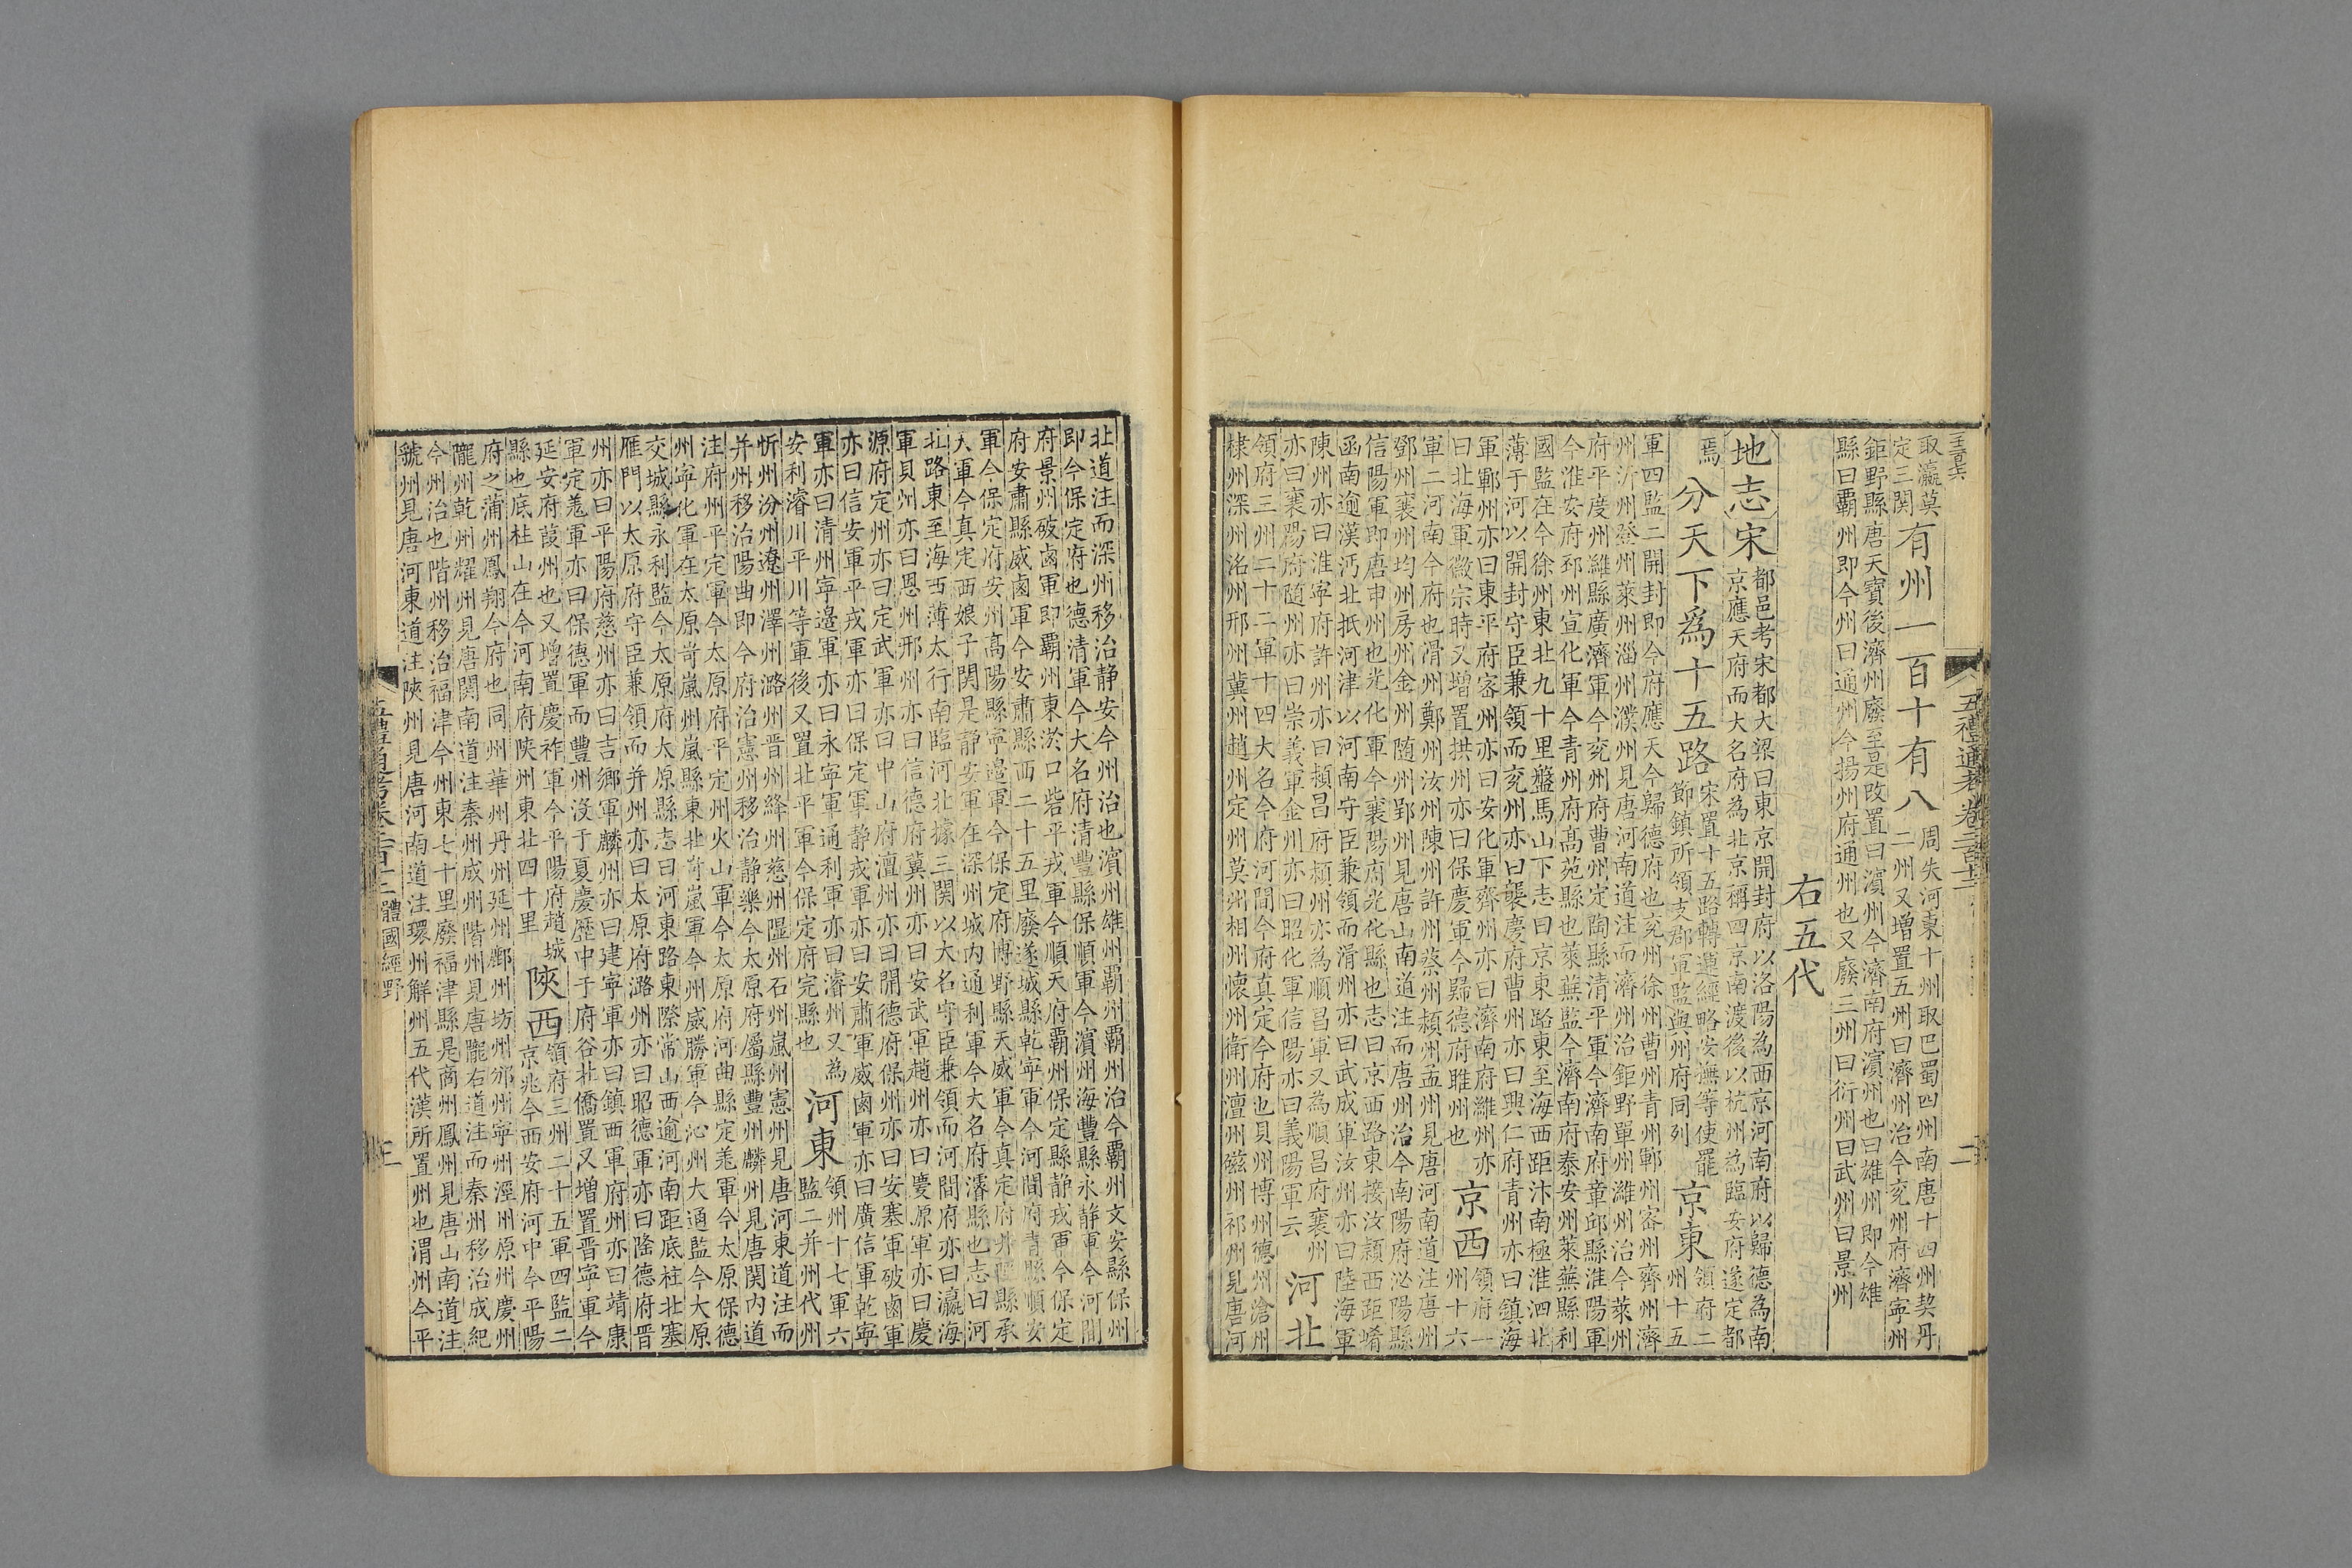 取瀛莫
定三關
有州一百十有八
周失河東十州取巴蜀四州南唐十四州契丹
二州又增置五州曰濟州治今兖州府濟寧州
鉅野縣唐天寶後濟州廢至是改置曰濱州今濟南府濱州也曰雄州即今雄
縣曰霸州即今州曰通州今揚州府通州也又廢三州曰衍州曰武州曰景州
右五代
地志宋
都邑考宋都大梁曰東京開封府以洛陽為西京河南府以歸德為南
京應天府而大名府為北京稱四京南渡後以杭州為臨安府遂定都
焉
分天下爲十五路
宋置十五路轉運經略安撫等使罷
節鎮所領支郡軍監與州府同列
京東
領府二
州十五
軍四監二開封即今府應天今歸德府也兖州徐州曹州青州鄆州密州齊州濟
州沂州登州萊州淄州濮州見唐河南道注而濟州治鉅野單州濰州治今萊州
府平度州濰縣廣濟軍今兖州府曹州定陶縣清平軍今濟南府章邱縣淮陽軍
今淮安府邳州宣化軍今青州府高苑縣也萊蕪監今濟南府泰安州萊蕪縣利
國監在今徐州東北九十里盤馬山下志曰京東路東至海西距汴南極淮泗北
薄于河以開封守臣兼領而兖州亦曰襲慶府曹州亦曰興仁府青州亦曰鎮海
軍鄆州亦曰東平府密州亦曰安化軍齊州亦曰濟南府濰州亦
曰北海軍徽宗時又增置拱州亦曰保慶軍今歸德府睢州也
京西
領府一
州十六
軍二河南今府也滑州鄭州汝州陳州許州蔡州潁州孟州見唐河南道注唐州
鄧州襄州均州房州金州隨州郢州見唐山南道注而唐州治今南陽府泌陽縣
信陽軍即唐申州也光化軍今襄陽府光化縣也志曰京西路東接汝潁西距崤
函南逾漢沔北抵河津以河南守臣兼領而滑州亦曰武成軍汝州亦曰陸海軍
陳州亦曰淮寧府許州亦曰潁昌府潁州亦為順昌軍又為順昌府襄州
亦曰襄陽府隨州亦曰崇義軍金州亦曰昭化軍信陽亦曰義陽軍云
河北
領府三州二十二軍十四大名今府河間今府真定今府也貝州博州德州滄州
棣州深州洺州邢州冀州趙州定州莫州相州懷州衛州澶州磁州祁州見唐河
五禮通考卷二百十二
二
北道注而深州移治静安今州治也濱州雄州霸州霸州治今霸州文安縣保州
即今保定府也德清軍今大名府清豐縣保順軍今濱州海豐縣永静軍今河間
府景州破鹵軍即霸州東淤口砦平戎軍今順天府霸州保定縣静戎軍今保定
府安肅縣威鹵軍今安肅縣西二十五里廢遂城縣乾寧軍今河間府青縣順安
軍今保定府安州高陽縣寧邊軍今保定府博野縣天威軍今真定府井陘縣承
天軍今真定西娘子関是静安軍在深州城内通利軍今大名府濬縣也志曰河
北路東至海西薄太行南臨河北據三関以大名守臣兼領而河間府亦曰瀛海
軍貝州亦曰恩州邢州亦曰信德府冀州亦曰安武軍趙州亦曰慶原軍亦曰慶
源府定州亦曰定武軍亦曰中山府澶州亦曰開德府保州亦曰安塞軍破鹵軍
亦曰信安軍平戎軍亦曰保定軍静戎軍亦曰安肅軍威鹵軍亦曰廣信軍乾寧
軍亦曰清州寧邊軍亦曰永寧軍通利軍亦曰濬州又為
安利濬川平川等軍後又置北平軍今保定府完縣也
河東
領州十七軍六
監二并州代州
忻州汾州遼州澤州潞州晋州絳州慈州隰州石州嵐州憲州見唐河東道注而
并州移治陽曲即今府治憲州移治静樂今太原府屬縣豐州麟州見唐関内道
注府州平定軍今太原府平定州火山軍今太原府河曲縣定羌軍今太原保德
州寧化軍在太原岢嵐州嵐縣東北岢嵐軍今州威勝軍今沁州大通監今大原
交城縣永利監今太原府太原縣志曰河東路東際常山西逾河南距底柱北塞
雁門以太原府守臣兼領而并州亦曰太原府潞州亦曰昭德軍亦曰隆德府晋
州亦曰平陽府慈州亦曰吉鄉軍麟州亦曰建寧軍亦曰鎮西軍府州亦曰靖康
軍定羌軍亦曰保德軍而豐州沒于夏慶歷中于府谷北僑置又增置晋寧軍今
延安府葭州也又增置慶祚軍今平陽府趙城
縣也底柱山在今河南府陝州東北四十里
陝西
領府三州二十五軍四監二
京兆今西安府河中今平陽
府之蒲州鳳翔今府也同州華州丹州延州鄜州坊州邠州寧州涇州原州慶州
隴州乾州耀州見唐関南道注秦州成州階州見唐隴右道注而秦州移治成紀
今州治也階州移治福津今州東七十里廢福津縣是商州鳳州見唐山南道注
虢州見唐河東道注陝州見唐河南道注環州解州五代漢所置州也渭州今平
五禮通考卷二百十二
體國經野